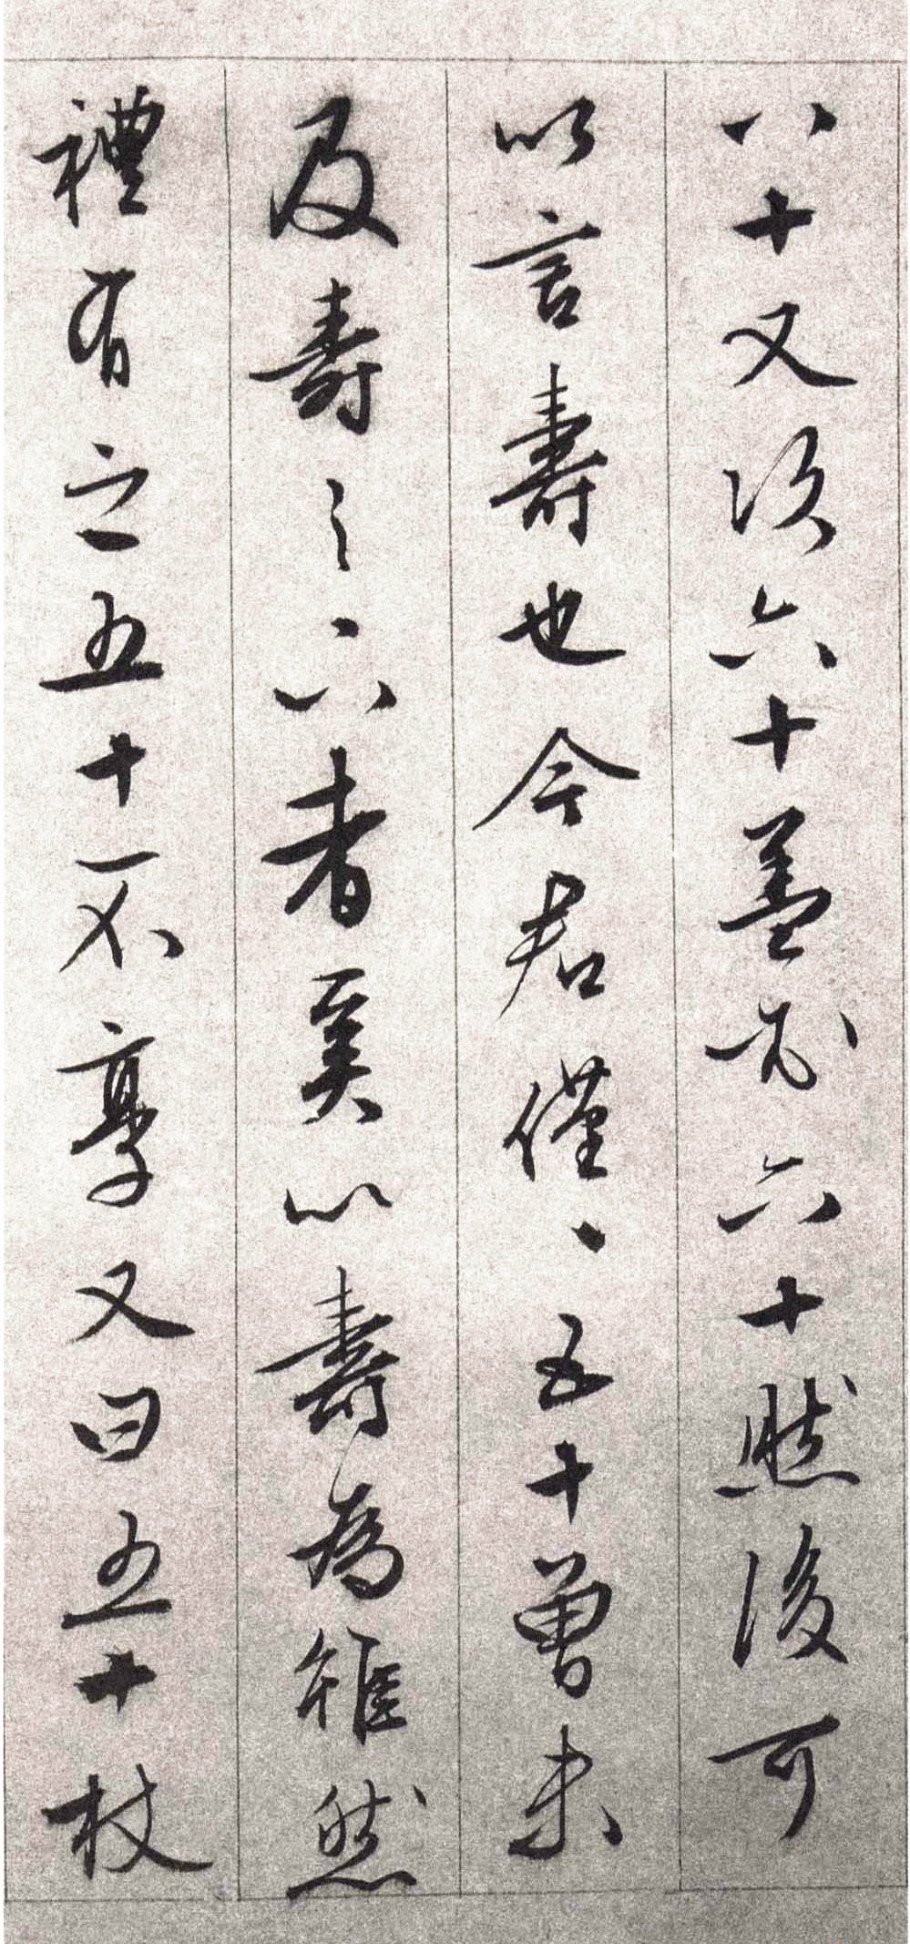 八十又次六十蓋必六十然後可
以言壽也今君僅、五十曾未
及壽之六者奚以壽為雖然
禮有之五十不享又曰五十杖